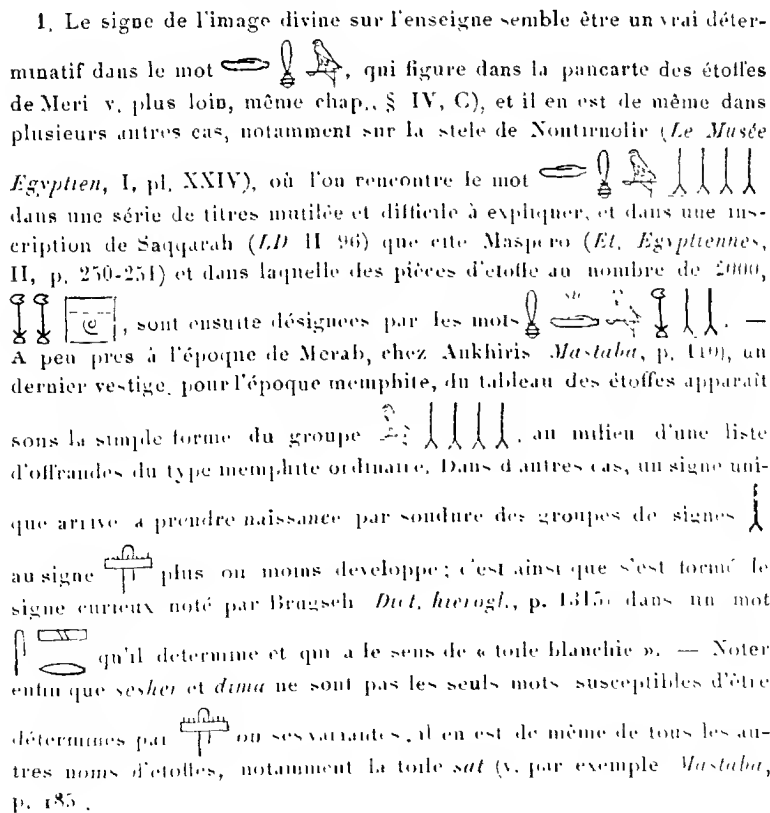 1. Le signe de l'image divine sur l'enseigne semble être un vrai déter-
minatif dans le mot , qui figure dans la pancarte des étoffes
de Meri v. plus loin, même chap., § IV, C), et il en est de même dans
plusieurs autres cas, notamment sur la stele de (Le Musée
Egyptien, I, pl. XXIV), où l'on rencontre le mot
dans une série de titres mutilée et difficile à expliquer, et dans une ins-
cription de Saqqarah (LD II 96) que cite Maspero (Et. Egyptiennes,
II, p. 250-251) et dans laquelle des pièces d'etoffe au nombre de 2000,
, sont ensuite désignees par les mots . —
A peu pres à l'époque de Merab, chez Ankhiris Mastaba, p. , un
dernier vestige, pour l'époque memphite, du tableau des étoffes apparaît
sous la simple forme du groupe , au milieu d'une liste
d'offrandes du type memphite ordinaire. Dans d'autres cas, un signe uni-
que arrive a prendre naissance par soudure des groupes de signes
au signe plus ou moins developpe; c'est ainsi que s'est formé le
signe curieux noté par Brugsch Dict. hierogl., p. 1315) dans un mot
qu'il determine et qui a le sens de « toile blanchie ». — Noter
enfin que sesher et dima ne sont pas les seuls mots susceptibles d'être
détermines par ou ses variantes, il en est de même de tous les au-
tres noms d'etoffes, notamment la toile sat (v. par exemple Mastaba,
p. 185.